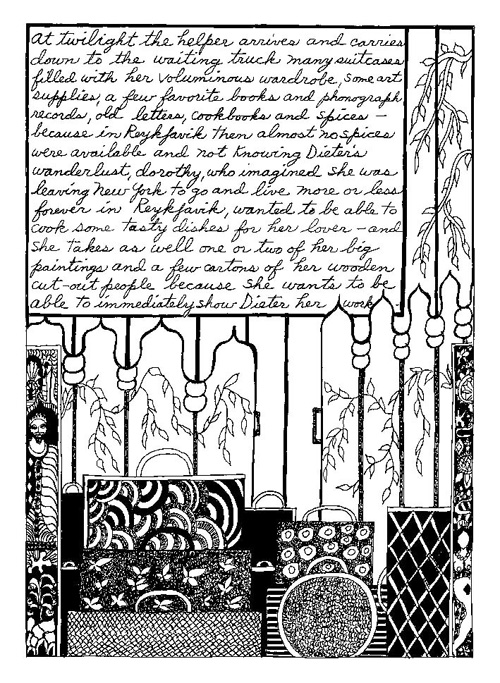 at twilight the helper arrives and carries
down to the waiting truck many suitcases
filled with her voluminous wardrobe, some art
supplies, a few favorite books and phonograph
records, old letters, cookbooks and spices –
because in Reykjavik then almost no spices
were available and not knowing Dieter's
wanderlust, dorothy, who imagined she was
leaving New York to go and live more or less
forever in Reykjavik, wanted to be able to
cook some tasty dishes for her lover – and
she takes as well one or two of her big
paintings and a few cartons of her wooden
cut-out people because she wants to be
able to immediately show Dieter her work